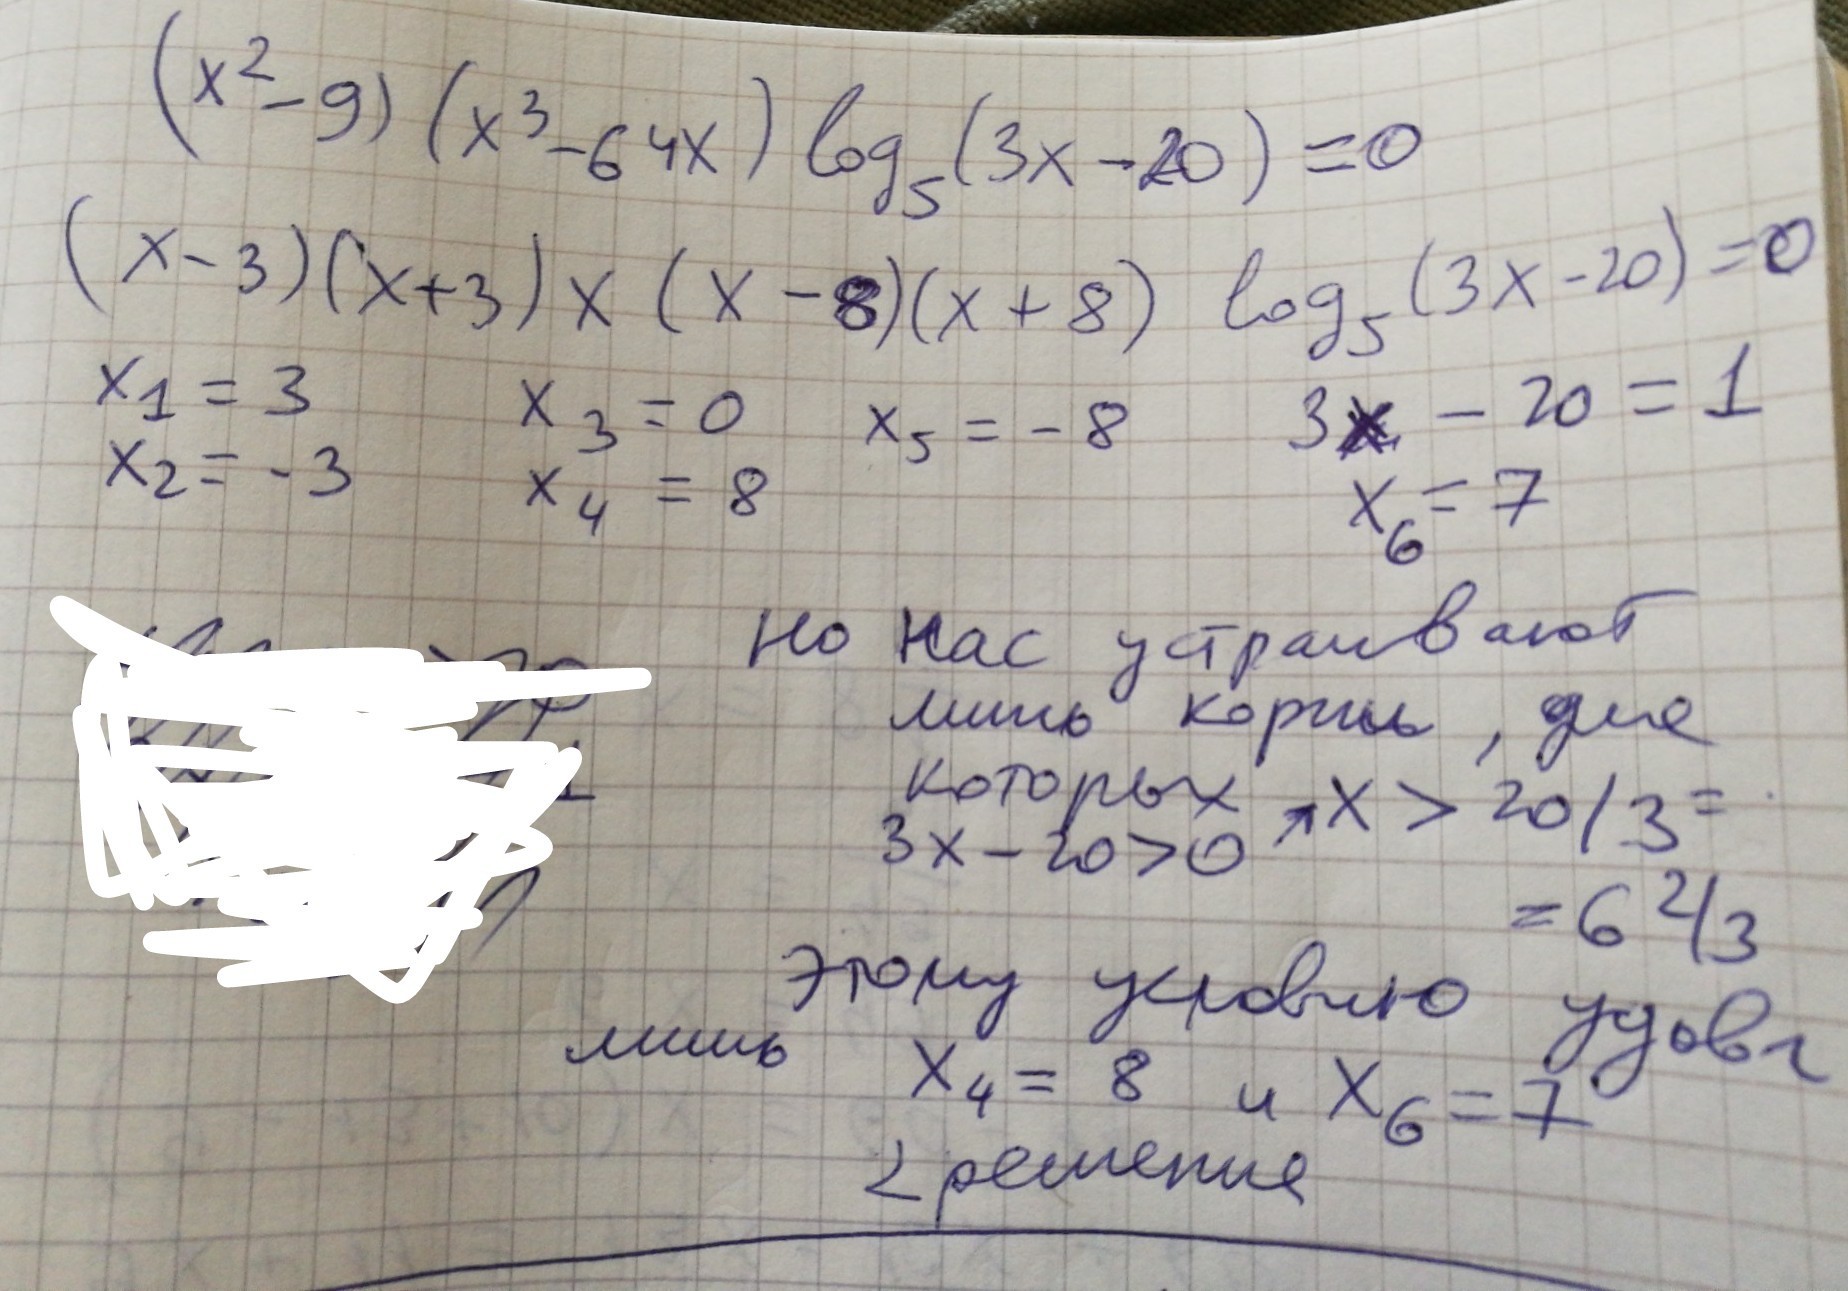 (x²-9)(x³-64x) log₅(3x-20)=0
(x-3)(x+3)x(x-8)(x+8) log₅(3x-20)=0
x₁=3 x₃=0 x₅=-8 3x-20=1
x₂=-3 x₄=8 x₆=7
Но нас устраивают
лишь корни, для
которых x>20/3=
3x-20>0
=6 2/3
Этому условию удовл
лишь x₄=8 и x₆=7
2 решения